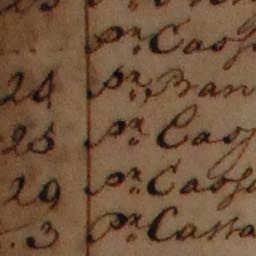 23 pr.
pr. Cass
24 pr. Bran
25 pr. Cass
29 pr. Cass
3 pr. Cassa